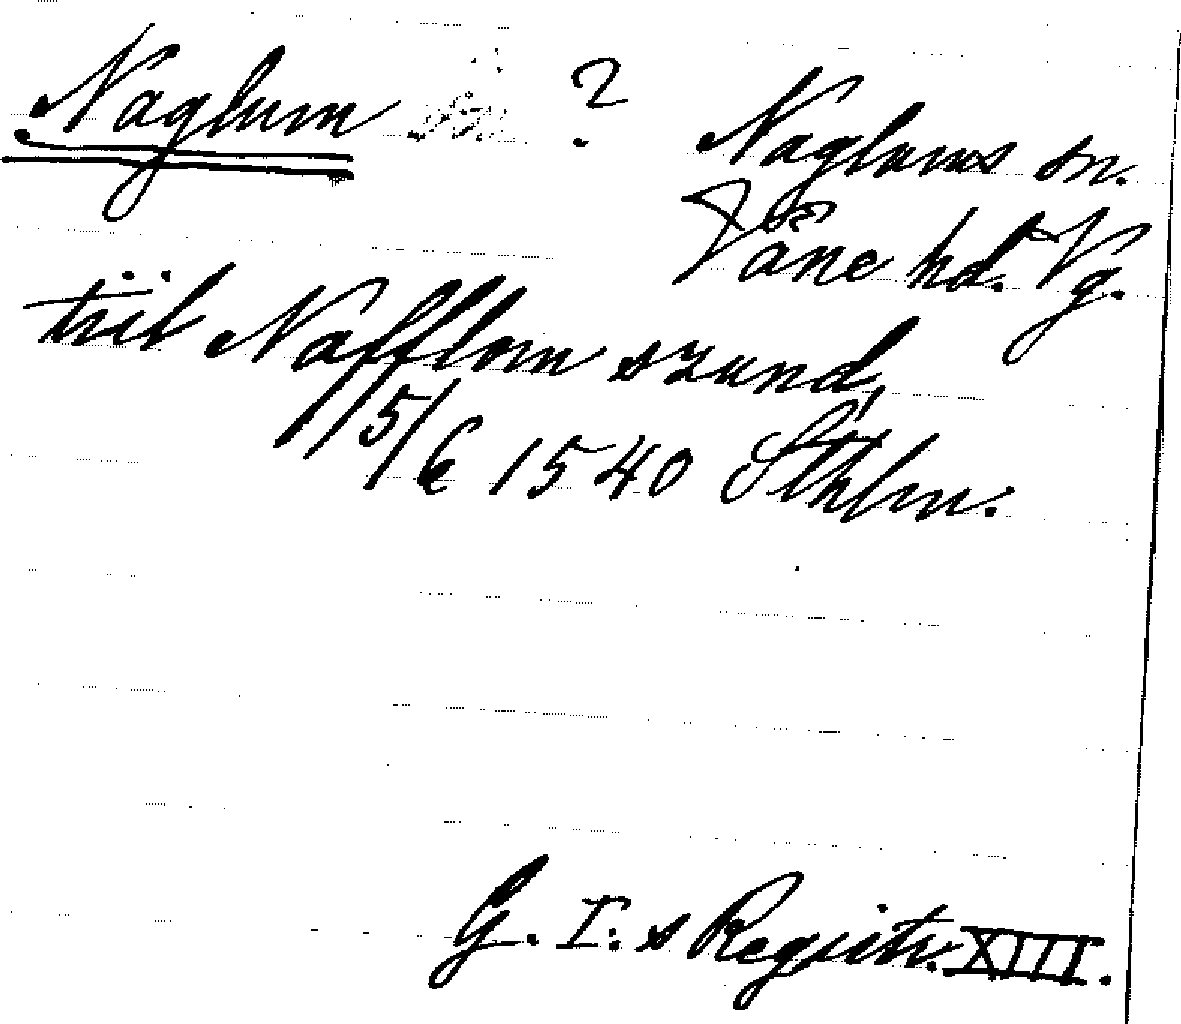 Naglum ? Naglums sn.
Väne hd. Vg.
tiil Nafflom szund,
15/6 1540 Sthlm.
G. I:s Registr. XIII.